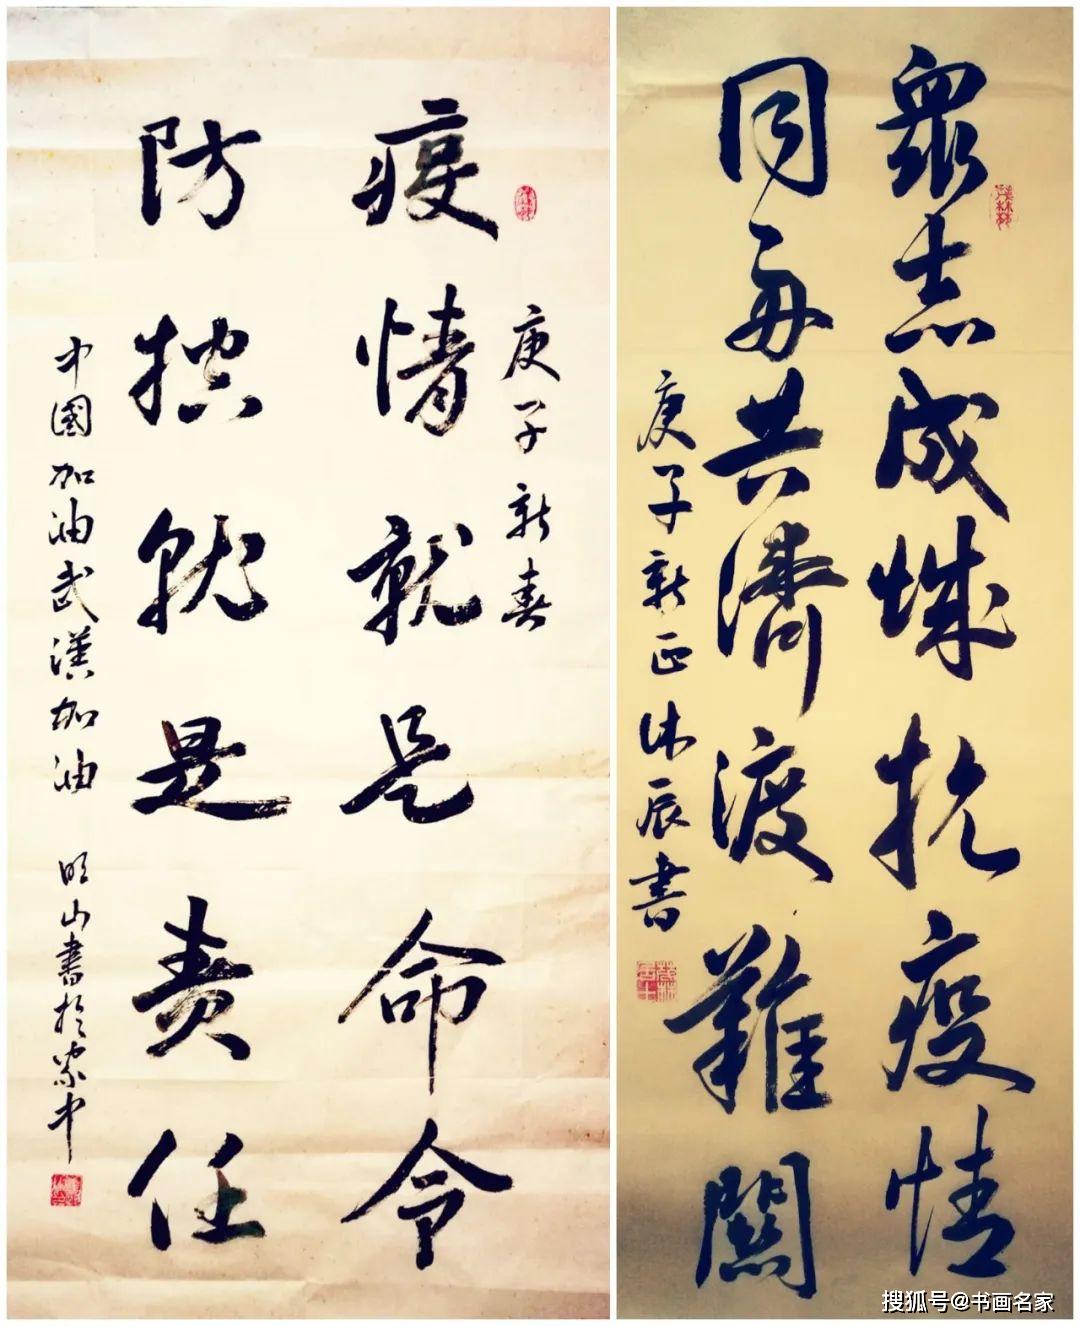 庚子新春
疫情就是命令
防控就是责任
中國加油武漢加油 明山書於家中
眾志成城抗疫情
同舟共濟渡難關
庚子新正 休辰書
搜狐号@书画名家